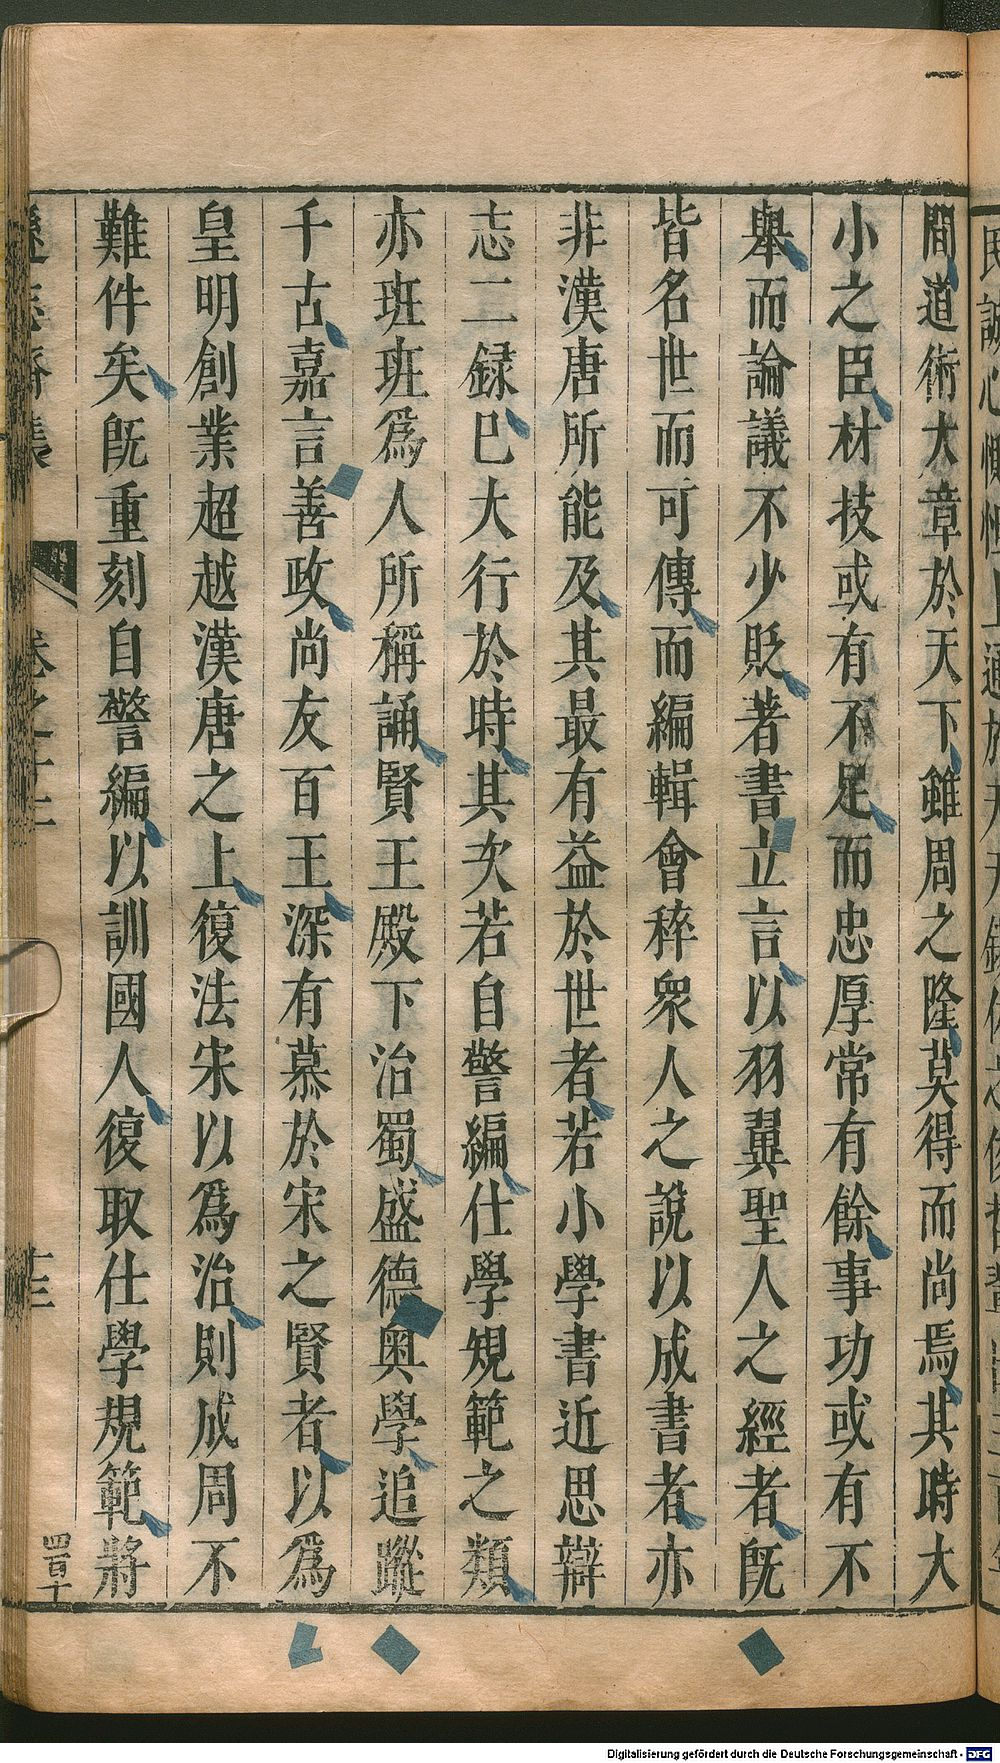 間道術大章於天下雖周之隆莫得而尚焉其時大
小之臣材技或有不足而忠厚常有餘事功或有不
舉而論議不少貶著書立言以羽翼聖人之經者既
皆名世而可傳而編輯會稡衆人之說以成書者亦
非漢唐所能及其最有益於世者若小學書近思辯
志二録巳大行於時其次若自警編仕學規範之類
亦班班爲人所稱誦賢王殿下治蜀盛德奥學追蹤
千古嘉言善政尚友百王深有慕於宋之賢者以爲
皇明創業超越漢唐之上復法宋以爲治則成周不
難件矣既重刻自警編以訓國人復取仕學規範將
遜志齋集 卷之十二 十三
四百四十
Digitalisierung gefördert durch die Deutsche Forschungsgemeinschaft - DFG